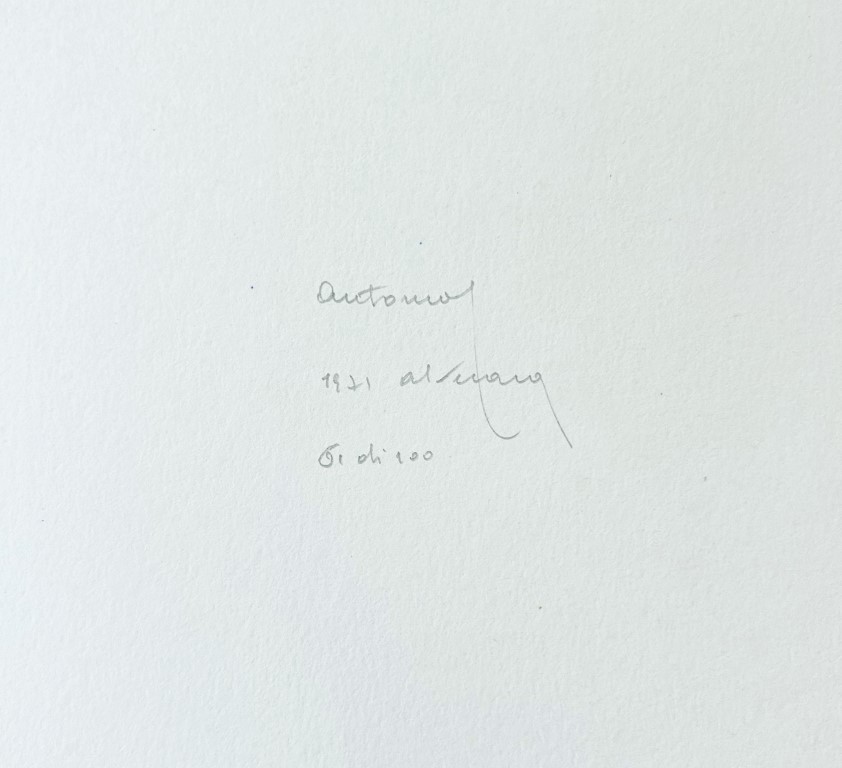 antonio
1971 alviani
61 di 100